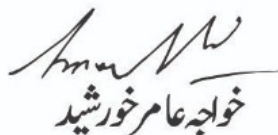 خواجہ عامر خورشید